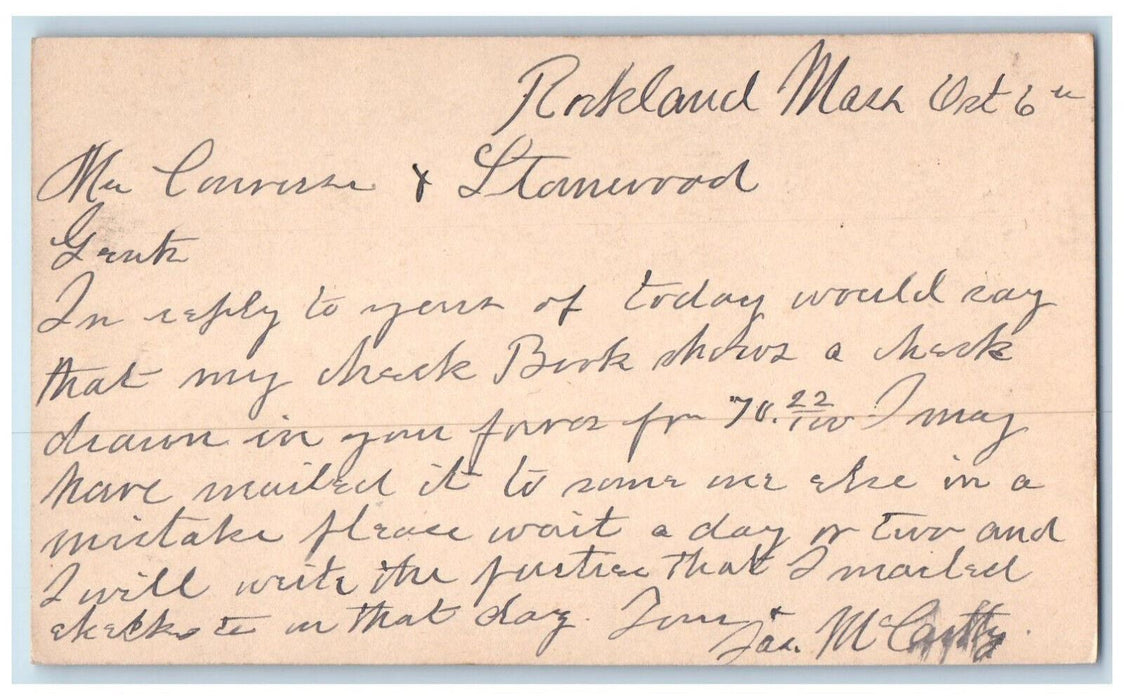 Rockland Mass Oct 6th
Mr Converse & Stanwood
Gents
In reply to yours of today would say
that my check Book shows a check
drawn in your favor for 70.22/100 I may
have mailed it to some one else in a
mistake please wait a day or two and
I will write the parties that I mailed
checks to on that day. Yours &
Jas. McCartty.